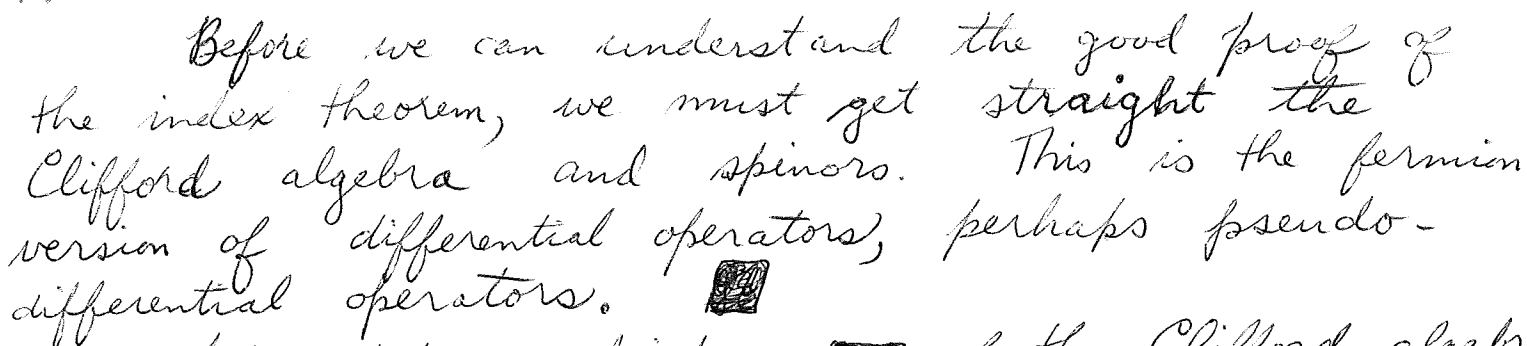 Before we can understand the good proof of
the index theorem, we must get straight the
Clifford algebra and spinors. This is the fermion
version of differential operators, perhaps pseudo-
differential operators.